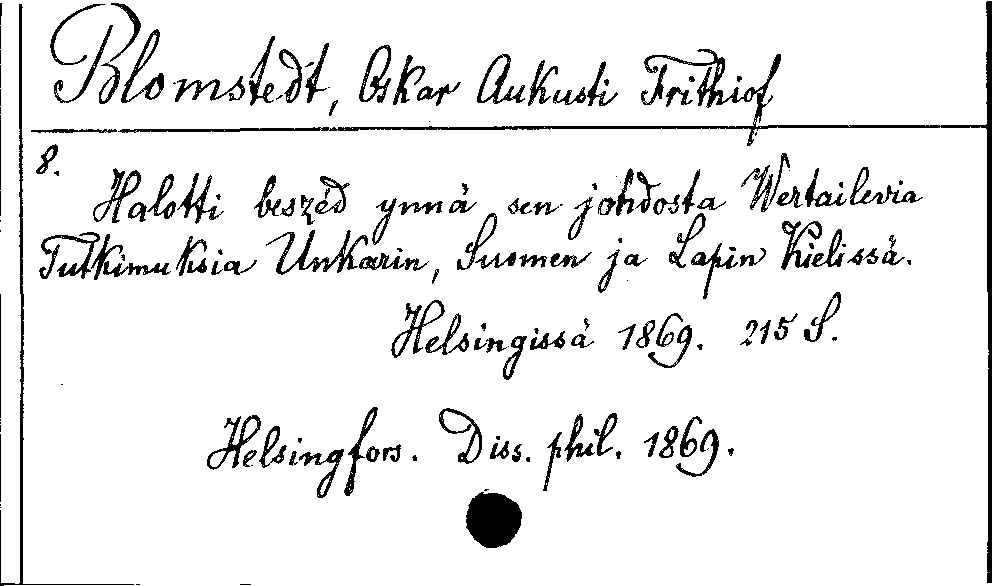 Blomstedt, Oskar Aukusti Frithiof
8.
Halotti beszéd ynnä sen johdosta Wertailevia
Tutkimuksia Unkarin, Suomen ja Lapin Kielissä.
Helsingissä 1869. 215 S.
Helsingfors. Diss. phil. 1869.